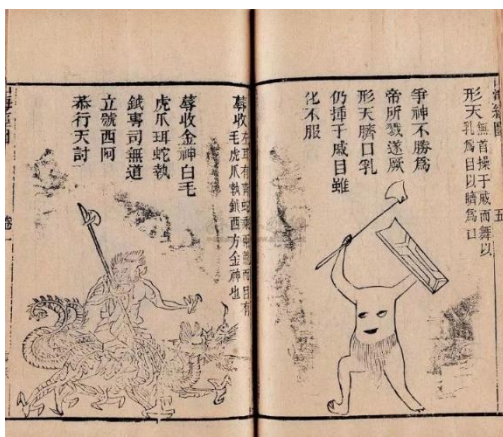 形天
無首操干戚而舞以
乳為目以臍為口
爭神不勝為
帝所戮遂厥
形天臍口乳
仍揮干戚目雖
化不服
五
蓐收
左耳有青蛇乘兩龍面目有
毛虎爪執鉞西方金神也
蓐收金神白毛
虎爪珥蛇執
鉞專司無道
立號西阿
恭行天討
山海經圖
卷一